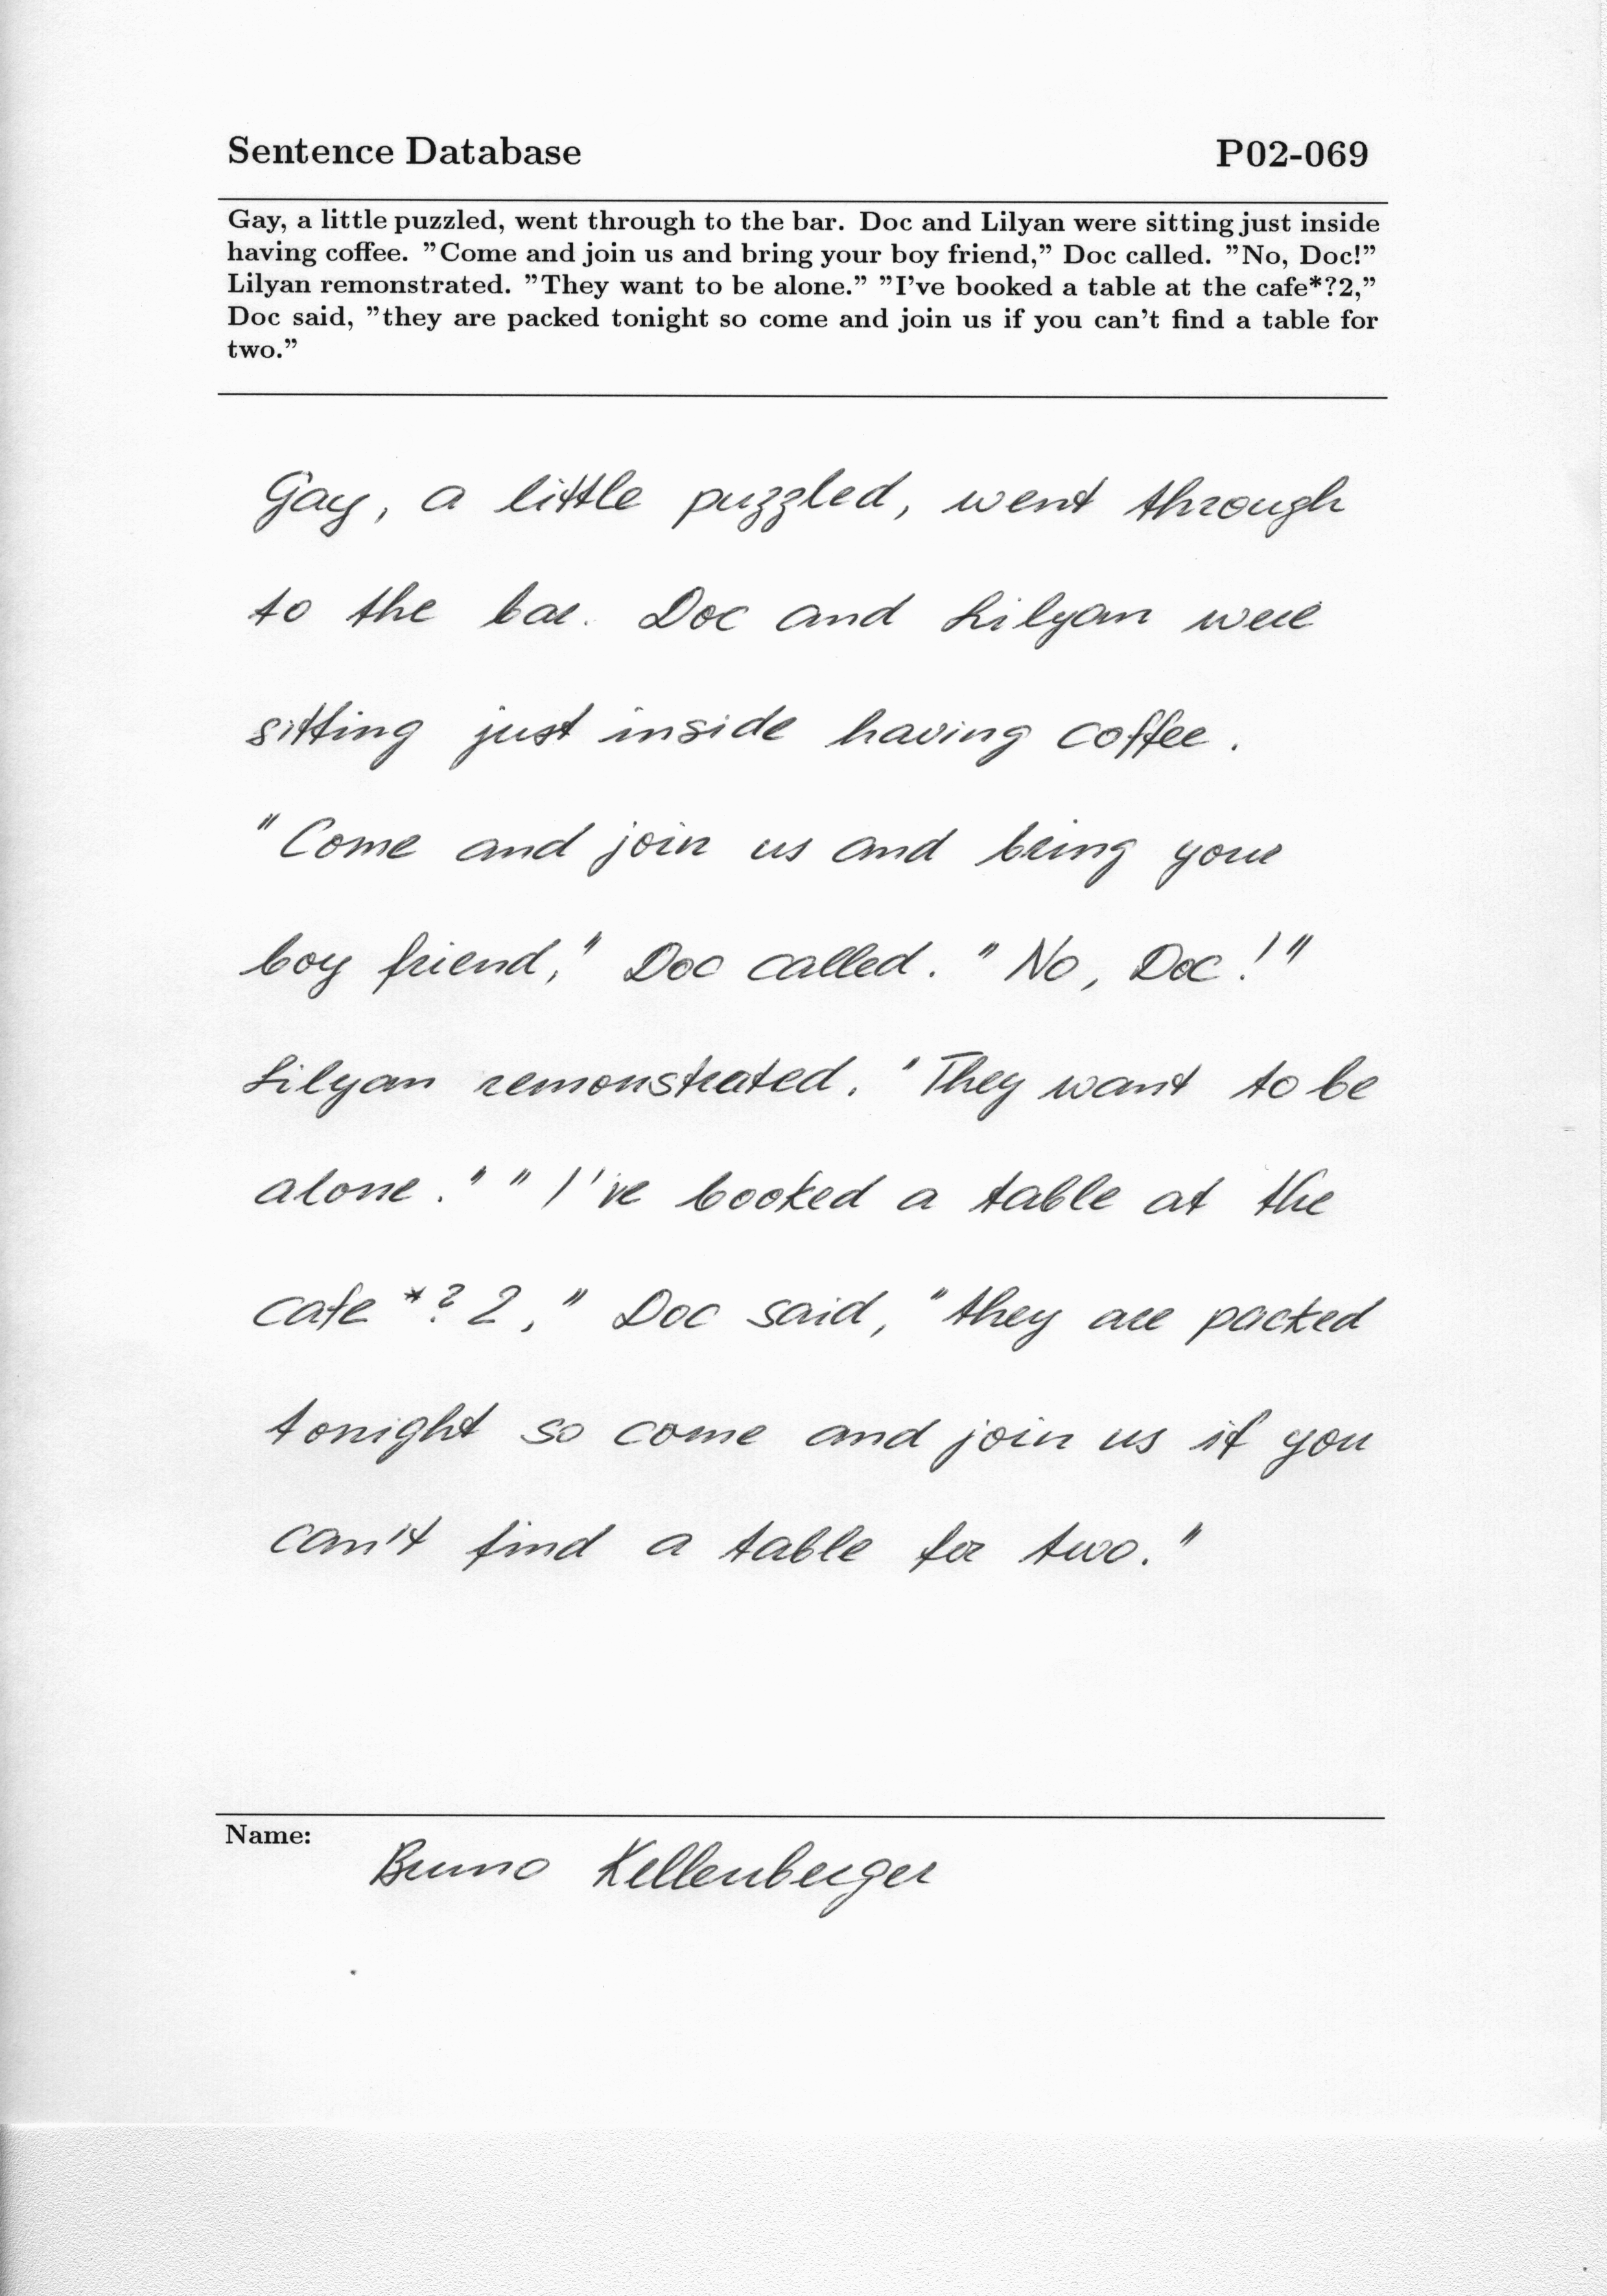 Sentence Database P02-069
Gay, a little puzzled, went through to the bar. Doc and Lilyan were sitting just inside
having coffee. ”Come and join us and bring your boy friend,” Doc called. ”No, Doc!”
Lilyan remonstrated. ”They want to be alone.” ”I’ve booked a table at the cafe*?2,”
Doc said, ”they are packed tonight so come and join us if you can’t find a table for
two.”
Gay, a little puzzled, went through
to the bar. Doc and Lilyan were
sitting just inside having coffee.
"Come and join us and bring your
boy friend," Doc called. "No, Doc!"
Lilyan remonstrated. "They want to be
alone." "I've booked a table at the
cafe *?2," Doc said, "they are packed
tonight so come and join us if you
can't find a table for two."
Name:
Bruno Kellenberger